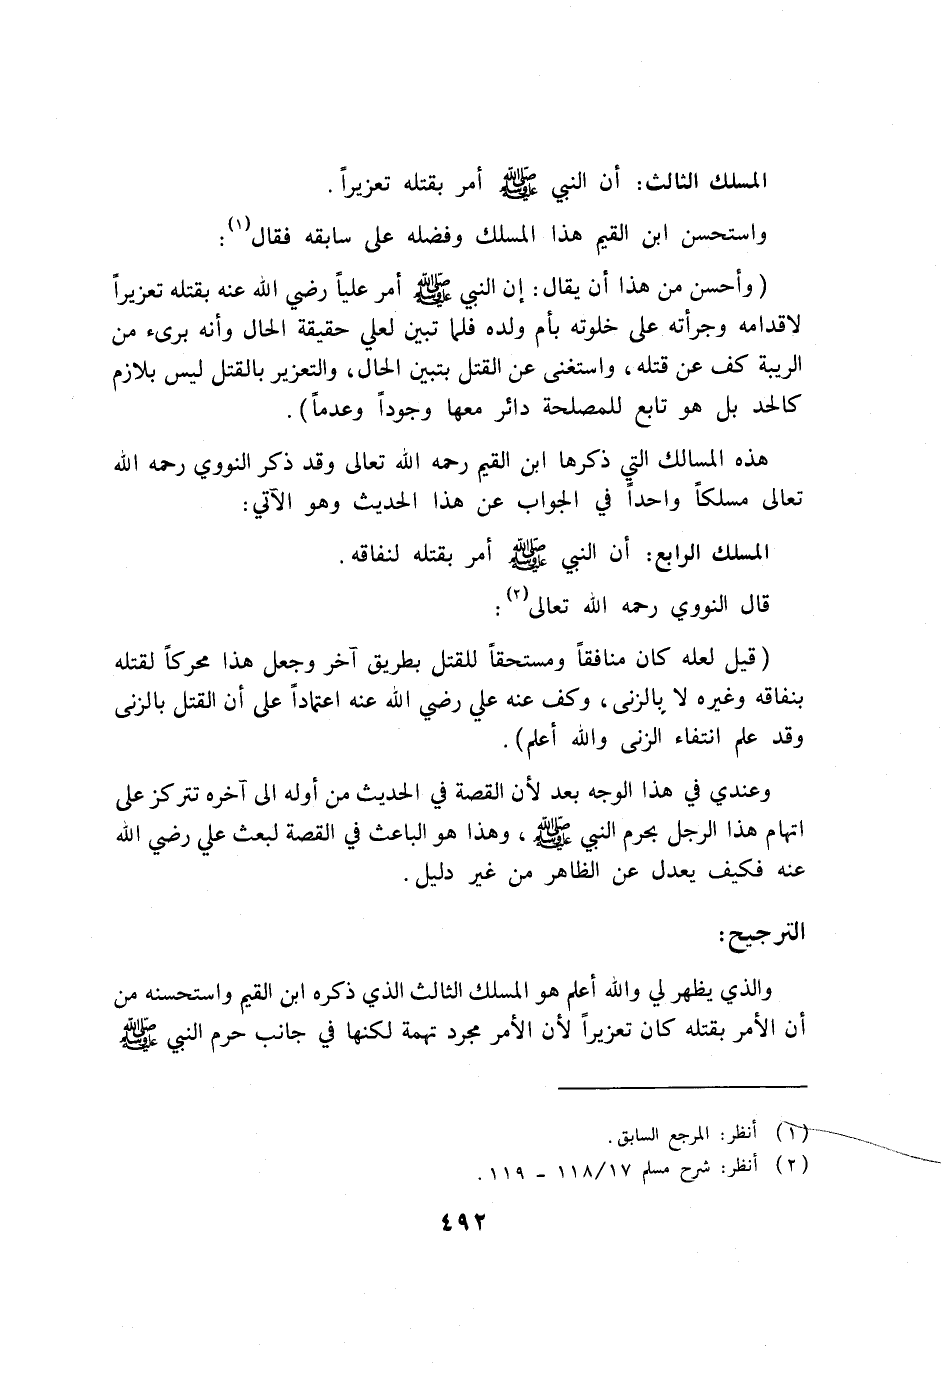 المسلك الثالث: أن النبي ﷺ أمر بقتله تعزيراً .
واستحسن ابن القيم هذا المسلك وفضله على سابقه فقال(١) :
( وأحسن من هذا أن يقال: إن النبي ﷺ أمر علياً رضي الله عنه بقتله تعزيراً
لاقدامه وجرأته على خلوته بأم ولده فلما تبين لعلي حقيقة الحال وأنه برىء من
الريبة كف عن قتله، واستغنى عن القتل بتبين الحال، والتعزير بالقتل ليس بلازم
كالحد بل هو تابع للمصلحة دائر معها وجوداً وعدماً) .
هذه المسالك التي ذكرها ابن القيم رحمه الله تعالى وقد ذكر النووي رحمه الله
تعالى مسلكاً واحداً في الجواب عن هذا الحديث وهو الآتي:
المسلك الرابع: أن النبي ﷺ أمر بقتله لنفاقه .
قال النووي رحمه الله تعالى(٢) :
( قيل لعله كان منافقاً ومستحقاً للقتل بطريق آخر وجعل هذا محركاً لقتله
بنفاقه وغيره لا بالزنى، وكف عنه علي رضي الله عنه اعتماداً على أن القتل بالزنى
وقد علم انتفاء الزنى والله أعلم) .
وعندي في هذا الوجه بعد لأن القصة في الحديث من أوله الى آخره تتركز على
اتهام هذا الرجل بحرم النبي ﷺ ، وهذا هو الباعث في القصة لبعث علي رضي الله
عنه فكيف يعدل عن الظاهر من غير دليل .
الترجيح:
والذي يظهر لي والله أعلم هو المسلك الثالث الذي ذكره ابن القيم واستحسنه من
أن الأمر بقتله كان تعزيراً لأن الأمر مجرد تهمة لكنها في جانب حرم النبي ﷺ
(١) أنظر: المرجع السابق .
(٢) أنظر: شرح مسلم ١١٨/١٧ - ١١٩ .
٤٩٢